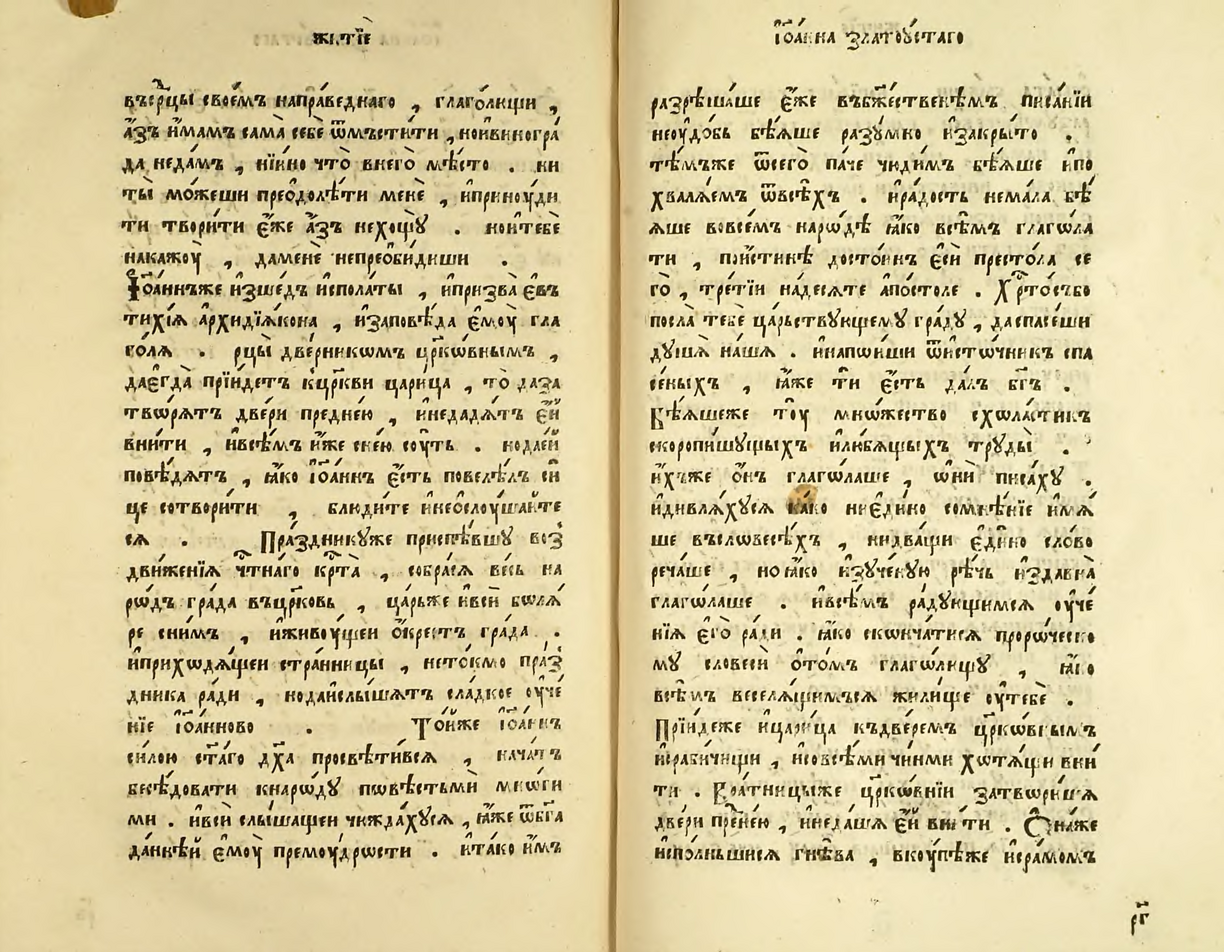 жи́тїе
въср҃цы своє́мъ напра́веднаго , глаго́лющи ,
а҆́зъ и҆́мамъ сама̀ себѐ ѿмъсти́ти , нои҆виногра́
да неда́мъ , нїи҆́но что̀ внего̀ мѣ́сто . ни
ты̀ мо́жеши преѡдолѣ́ти менѐ , и҆принꙋ́ди
ти твори́ти є҆́же а҆́зъ нехощꙋ̀ . нои҆тебѐ
накажꙋ̀ , даменѐ непреоби́диши .
І҆ѡа́ннъже и҆зше́дъ и҆спола́ты , и҆призва̀ є҆въ
ти́хїѧ а҆рхидїѧ́кона , и҆заповѣ́да є҆мꙋ̀ гла
го́лѧ . рцы̀ две́рникѡмъ цр҃кѡ́внымъ ,
дає҆гда̀ прїи́детъ кцр҃кви цари́ца , то̀ даза
творѧ́тъ две́ри пре́днею , и҆недадѧ́тъ є҆́й
вни́ти , и҆всѣ́мъ и҆̀же сне́ю сꙋ́ть . нодае҆́й
повѣ́дѧтъ , ꙗ҆́ко і҆ѡа́ннъ є҆́сть повелѣ́лъ си́
це сотвори́ти , блюди́те и҆неѡслꙋ́шайте
сѧ . Пра́здникꙋже приспѣ́вшꙋ воз̾
дви́женїѧ чт҃на́го крⷭ҇та̀ , собра́сѧ ве́сь на
рѡ́дъ гра́да въцр҃ковь , ца́рьже и҆всѝ боллѧ́
ре сни́мъ , и҆живꙋ́щеи ѻ҆́крестъ гра́да .
и҆приходѧ́щеи стра́нницы , нето́кмо пра́з
дника ра́ди , нодаи҆слы́шатъ сла́дкое ᲂу҆че́
нїе і҆ѡа́нново . То́йже і҆ѡа́ннъ
си́лою ст҃а́го дх҃а просвѣти́всѧ , нача́тъ
бесѣ́довати кнаро́дꙋ по́вѣстьми мно́ги
ми . и҆всѝ слы́шащеи чюжда́хꙋсѧ , ꙗ҆́же ѿбг҃а
да́ннѣй є҆мꙋ̀ премꙋ́дрости . и҆та́ко и҆́мъ
і҆ѡа́нна златоꙋ́стаго
разрѣша́ше є҆́же въбж҃е́ственѣмъ писа́нїи
неᲂу҆до́бь бѣ́ѧше разꙋ́мно и҆закры́то .
тѣ́мъже ѿсего̀ па́че чю́димъ бѣ́ѧше и҆по
хвалѧ́емъ ѿвсѣ́хъ . и҆ра́дость нема́ла бѣ́
ѧше вовсе́мъ наро́дѣ ꙗ҆́ко всѣ́мъ глаго́ла
ти , пои҆́стинѣ досто́инъ є҆сѝ престо́ла се
го̀ , тре́тїи на́десѧте а҆по́столе . Хрⷭ҇то́събо
посла̀ тебѐ ца́рьствꙋющемꙋ гра́дꙋ , даспасе́ши
дꙋ́шѧ на́шѧ . и҆напо́иши ѿи҆сто́чникъ спа
се́ныхъ , ꙗ҆́же тѝ є҆́сть да́лъ бг҃ъ .
Бѣ́ѧшеже тꙋ̀ мно́жество схола́стикъ
скоропи́шꙋщыхъ и҆любѧ́щыхъ трꙋды̀ .
и҆́хъже ѻ҆́нъ глаго́лаше , ѡ҆нѝ писа́хꙋ .
и҆дивлѧ́хꙋсѧ ꙗ҆́ко ниє҆ди́но сомнѣ́нїе и҆мѧ́
ше въсловесѣ́хъ , нидва́щи є҆ди́но сло́во
реча́ше , ноꙗ҆́ко и҆зꙋ́ченꙋю рѣ́чь и҆здавна̀
глаго́лаше . и҆всѣ́мъ ра́дꙋющимсѧ ᲂу҆че́
нїѧ є҆го̀ ра́ди . ꙗ҆́ко сконча́тисѧ проро́ческо
мꙋ словесѝ ѻ҆то́мъ глаго́лющꙋ , ꙗ҆́ко
всѣ́мъ веселѧ́щимъсѧ жили́ще ᲂу҆тебѐ .
Прїи́деже и҆цари́ца къдве́ремъ цр҃ко́внымъ
и҆рабы́чищи , и҆совсѣ́ми чи́нми хотѧ́щи вни́
ти . Вра́тницыже цр҃ко́внїи затвори́шѧ
две́ри пре́нею , и҆неда́шѧ є҆́й вни́ти . Ѻ҆на́же
и҆спо́лньшисѧ гнѣ́ва , вкꙋ́пѣже и҆сра́момъ
рг҃